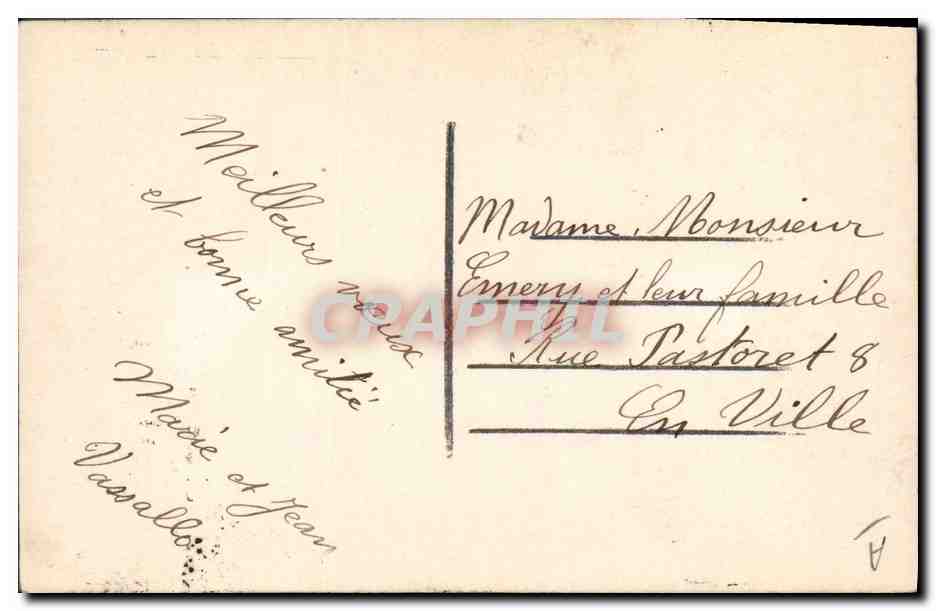 Meilleurs vœux
et bonne amitié
Marie et Jean
Vassallo
Madame, Monsieur
Emery et leur famille
Rue Pastoret 8
En Ville
CRAPHIL
A